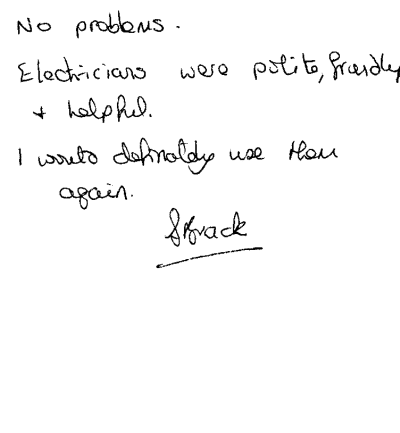 No problems.
Electricians were polite, friendly
+ helpful.
I would definately use them
again.